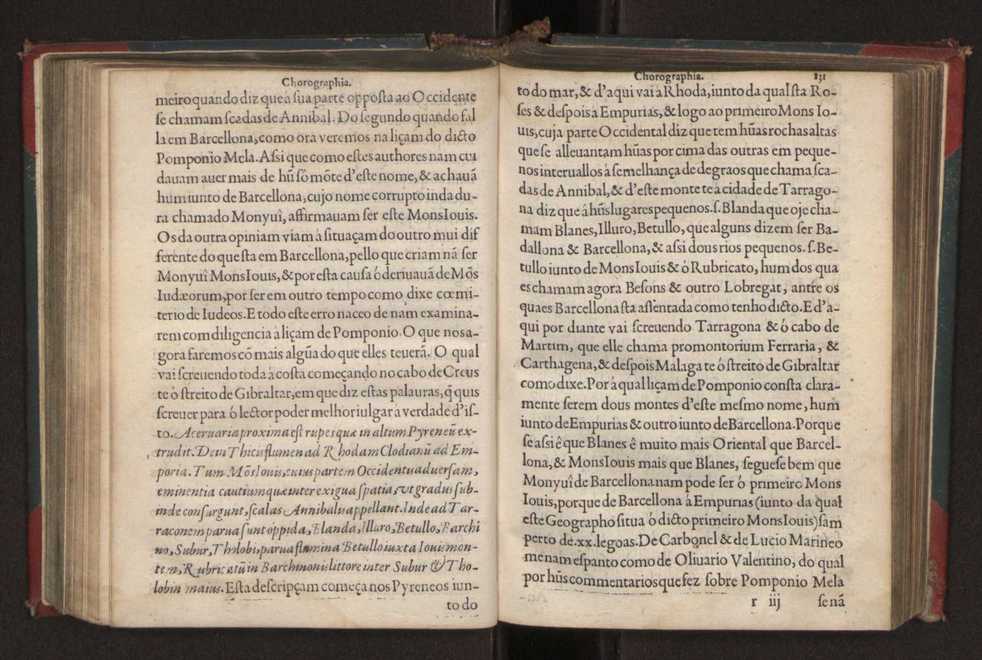 Chorographia.
meiro quando diz que a sua parte opposta ao Occidente
se chamam scadas de Annibal. Do segundo quando fal
la em Barcellona, como ora veremos na liçam do dicto
Pomponio Mela. Assi que como estes authores nam cui
dauam auer mais de hũ só mõte d'este nome, & achauã
hum iunto de Barcellona, cujo nome corrupto inda du-
ra chamado Monyuî, affirmauam ser este Mons Iouis.
Os da outra opiniam viam à situaçam do outro mui dif
ferente do que sta em Barcellona, pello que criam nã ser
Monyuî Mons Iouis, & por esta causa ó deriuauã de Mõs
Iudæorum, por ser em outro tempo como dixe cœmi-
terio de Iudeos. E todo este erro naceo de nam examina-
rem com diligencia à liçam de Pomponio. O que nos a-
gora faremos cõ mais algũa do que elles teuerã. O qual
vai screuendo toda à costa começando no cabo de Creus
te ó streito de Gibraltar, em que diz estas palauras, q̃ quis
screuer para ó lector poder melhor iulgar à verdade d'is-
to. Aceruaria proxima est rupes quæ in altum Pyreneũ ex-
trudit. Dein Thicis flumen ad Rhodam Clodianũ ad Em-
poria. Tum Mõs Iouis, cuius partem Occidenti aduersam,
eminentia cautium quæ inter exigua spatia, vt gradus sub-
inde consurgunt, scalas Annibalis appellant. Inde ad Tar-
raconem parua sunt oppida, Blanda, Illuro, Betullo, Barchi
no, Subur, Tholobi, parua flumina Betullo iuxta Iouis mon-
tem, Rubricatũ in Barchinonis littore inter Subur & Tho-
lobin maius. Esta descripçam começa nos Pyreneos iun-
to do
Chorographia. 131
to do mar, & d'aqui vai a Rhoda, iunto da qual sta Ro-
ses & despois a Empurias, & logo ao primeiro Mons Io-
uis, cuja parte Occidental diz que tem hũas rochas altas
que se alleuantam hũas por cima das outras em peque-
nos interuallos à semelhança de degraos que chama sca-
das de Annibal, & d'este monte te à cidade de Tarrago-
na diz que à hũs lugares pequenos. s. Blanda que oje cha-
mam Blanes, Illuro, Betullo, que alguns dizem ser Ba-
dallona & Barcellona, & assi dous rios pequenos. s. Be-
tullo iunto de Mons Iouis & ó Rubricato, hum dos qua
es chamam agora Besons & outro Lobregat, antre os
quaes Barcellona sta assentada como tenho dicto. E d'a-
qui por diante vai screuendo Tarragona & ó cabo de
Martim, que elle chama promontorium Ferraria, &
Carthagena, & despois Malaga te ó streito de Gibraltar
como dixe. Por à qual liçam de Pomponio consta clara-
mente serem dous montes d'este mesmo nome, hum
iunto de Empurias & outro iunto de Barcellona. Porque
se assi ê que Blanes ê muito mais Oriental que Barcel-
lona, & Mons Iouis mais que Blanes, seguese bem que
Monyuî de Barcellona nam pode ser ó primeiro Mons
Iouis, porque de Barcellona à Empurias (iunto da qual
este Geographo situa ó dicto primeiro Mons Iouis) sam
perto de .xx. legoas. De Carbonel & de Lucio Marineo
me nam espanto como de Oliuario Valentino, do qual
por hũs commentarios que fez sobre Pomponio Mela
r iij senã